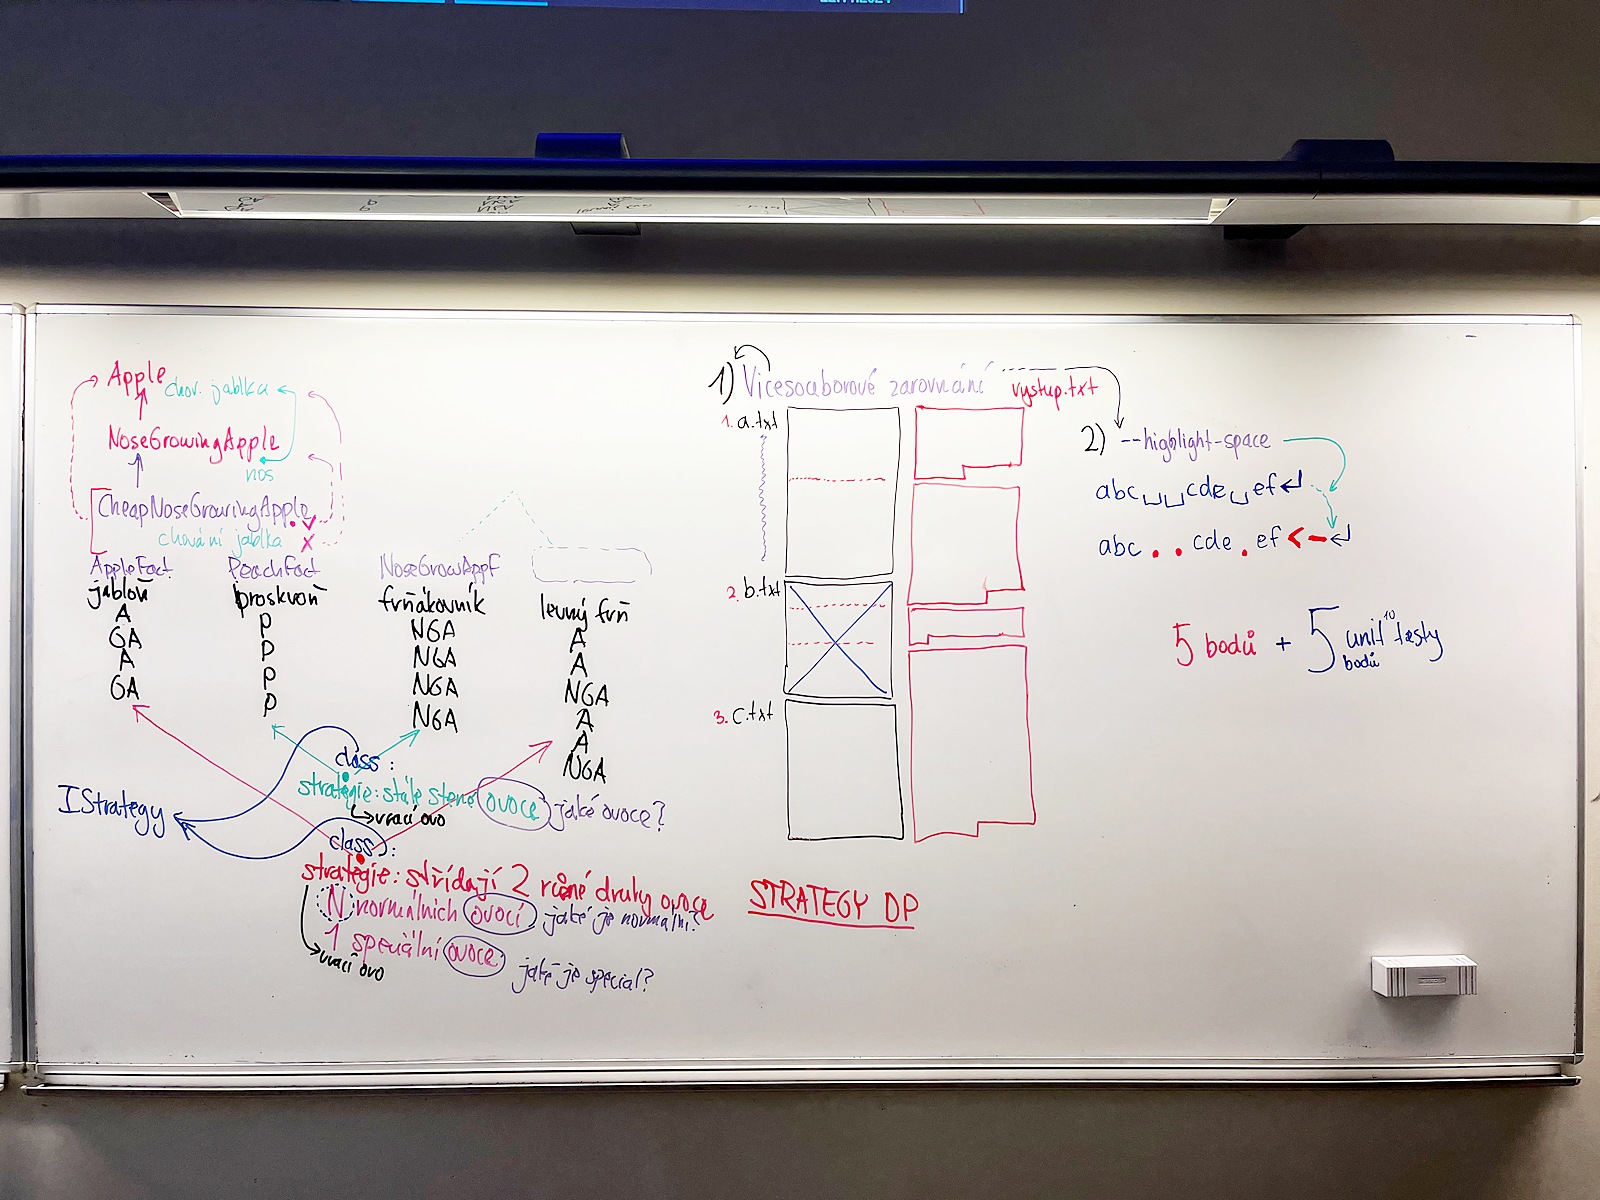 Apple
chov. jablka
NoseGrowingApple
nos
CheapNoseGrowingApple
chování jablka
AppleFact
jabloň
A
GA
A
GA
PeachFact
broskvoň
P
P
P
P
NoseGrowAppF
frňákovník
NGA
NGA
NGA
NGA
levný frň
A
A
NGA
A
A
NGA
IStrategy
class:
strategie: stále stejné ovoce jaké ovoce?
vrací ovo
class:
strategie: střídají 2 různé druhy ovoce
N normálních ovocí jaké je normální?
1 speciální ovoce jaké je special?
vrací ovo
1) Vícesouborové zarovnání
výstup.txt
1. a.txt
2. b.txt
3. c.txt
STRATEGY DP
2) --highlight-space
abc␣␣cde␣ef↵
abc..cde.ef<-↵
5 bodů + 5 bodů unit testy
10